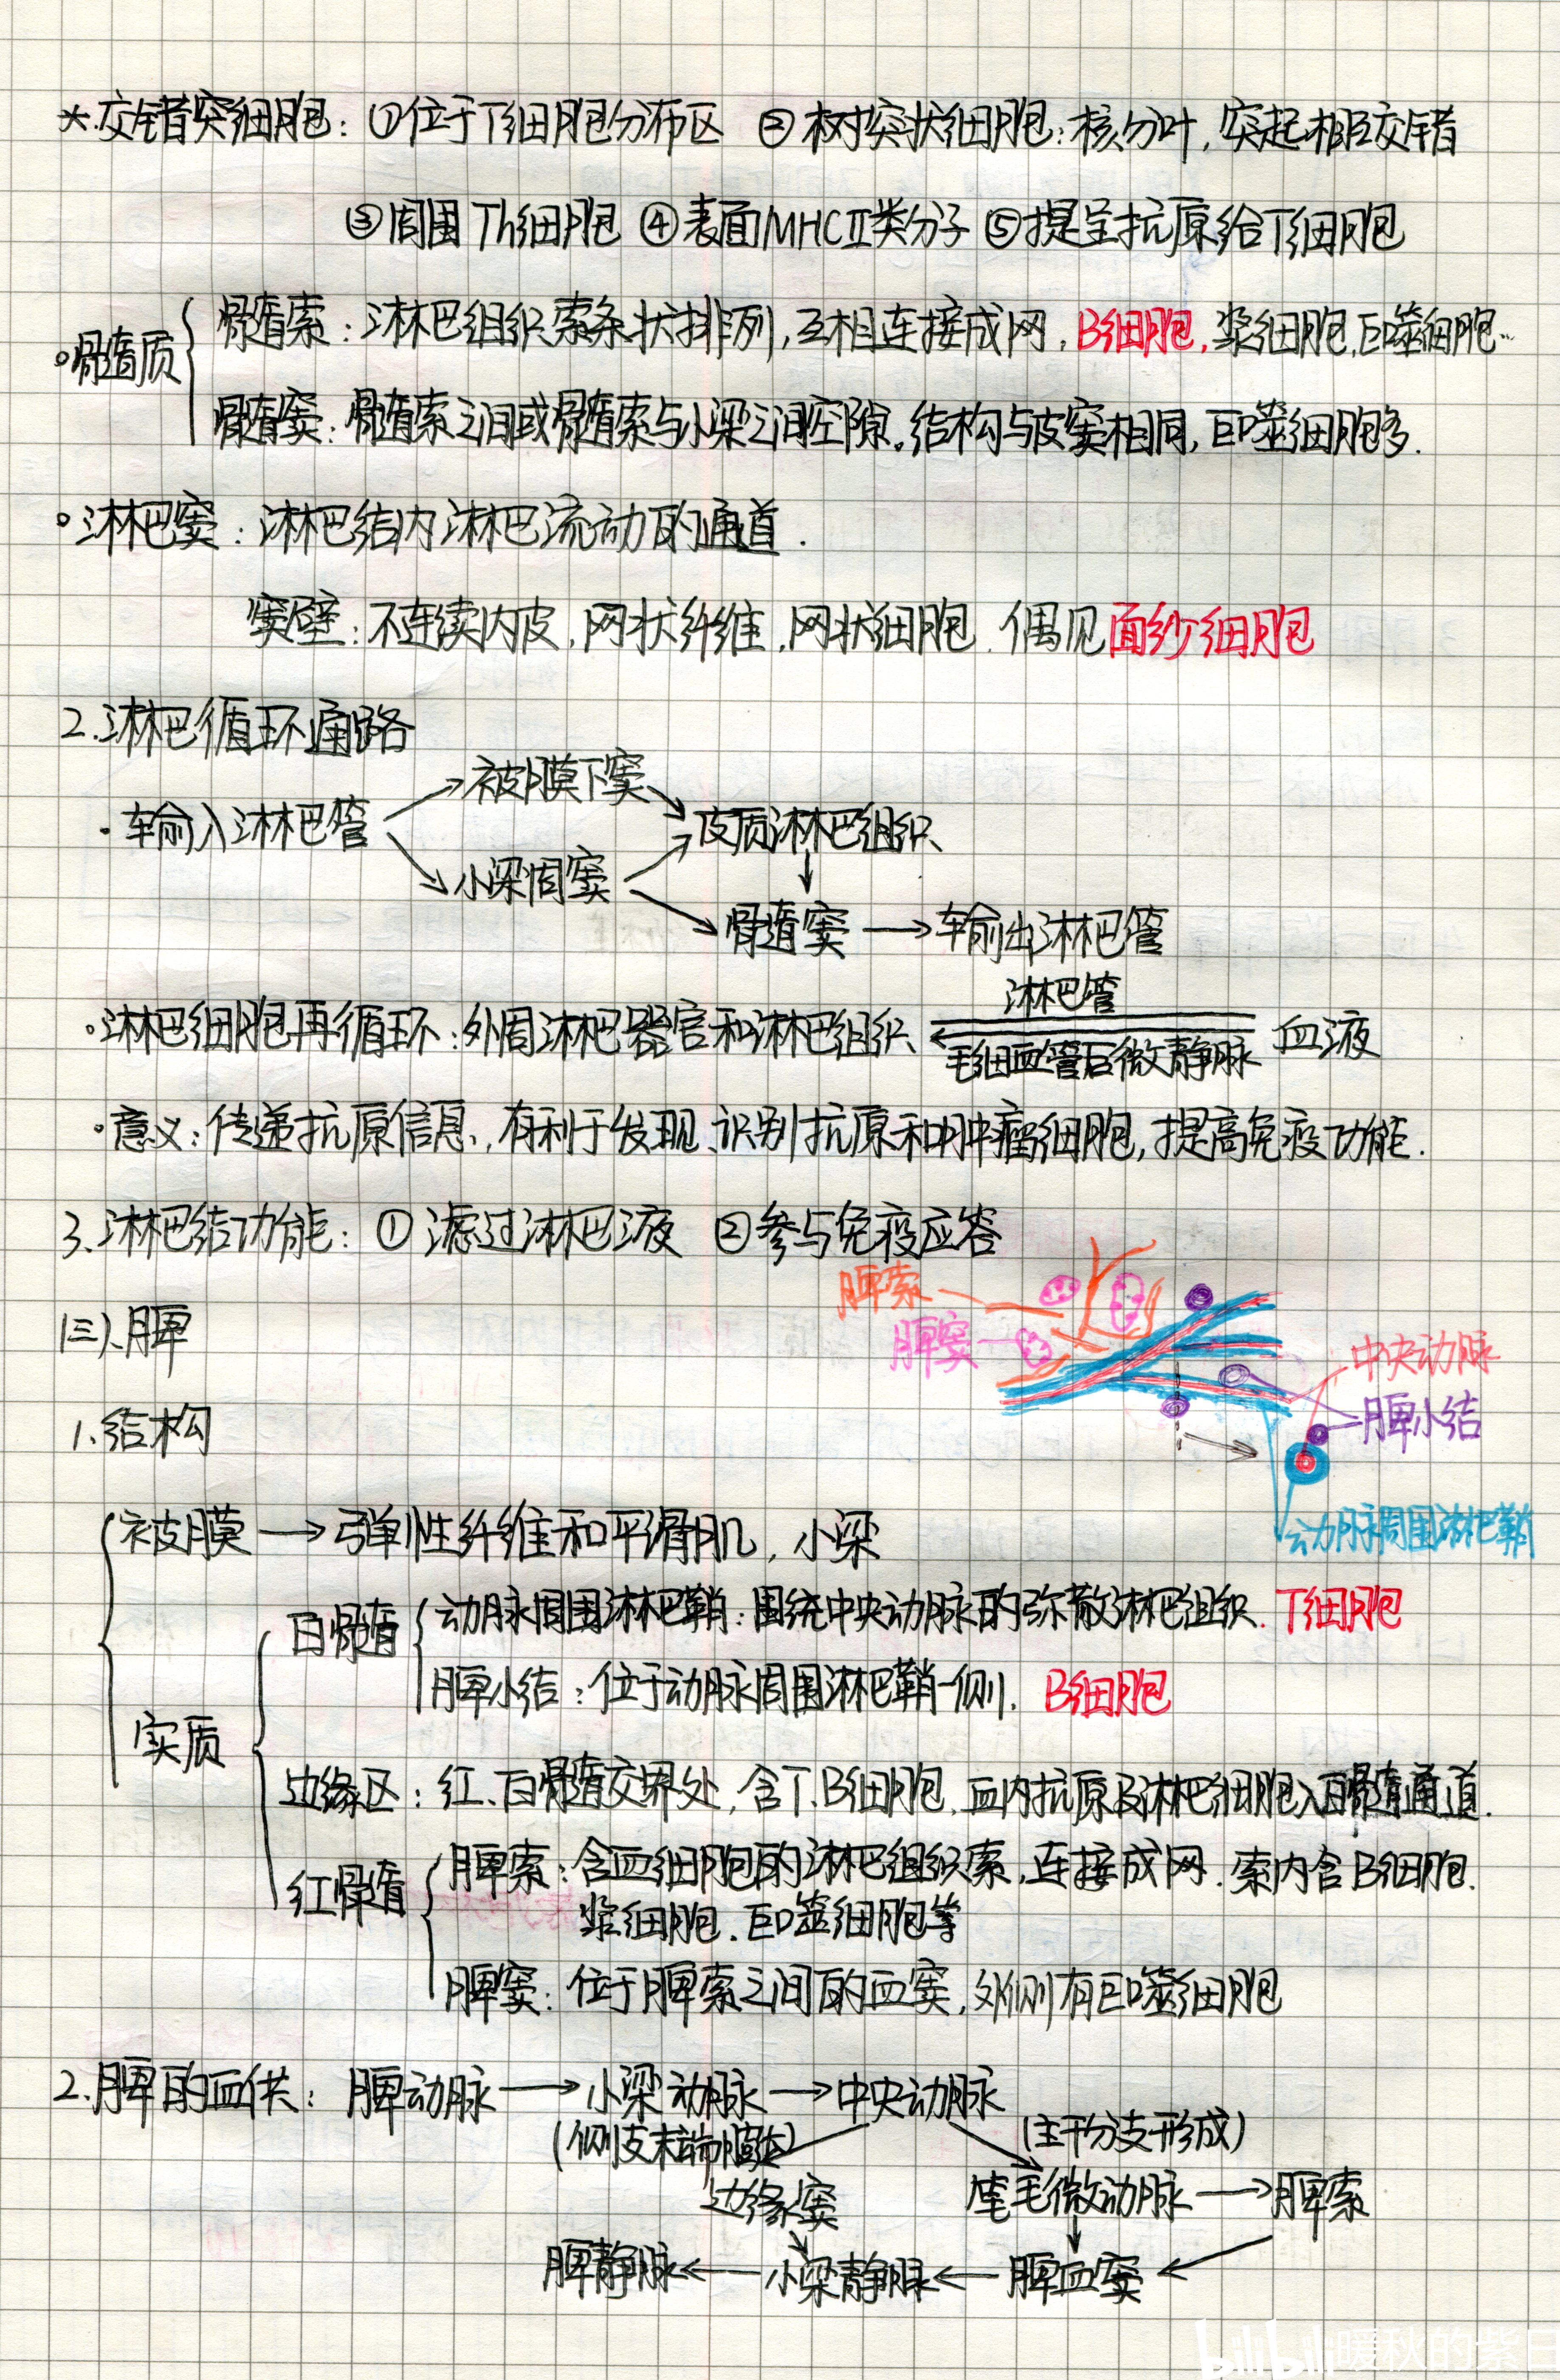 *.交错突细胞：①位于T细胞分布区 ②树突状细胞：核分叶，突起相互交错
③周围Th细胞 ④表面MHCⅡ类分子 ⑤提呈抗原给T细胞
髓质
髓索：淋巴组织索条状排列，互相连接成网，B细胞，浆细胞，巨噬细胞…
髓窦：髓索之间或髓索与小梁之间空隙。结构与皮窦相同，巨噬细胞多.
淋巴窦：淋巴结内淋巴流动的通道.
窦壁：不连续内皮，网状纤维，网状细胞.偶见面纱细胞
2.淋巴循环通路
·输入淋巴管
被膜下窦
小梁周窦
皮质淋巴组织
髓窦→输出淋巴管
·淋巴细胞再循环：外周淋巴器官和淋巴组织 淋巴管 毛细血管后微静脉 血液
·意义：传递抗原信息，有利于发现、识别抗原和肿瘤细胞，提高免疫功能.
3.淋巴结功能：①滤过淋巴液 ②参与免疫应答
脾索
脾窦
中央动脉
脾小结
动脉周围淋巴鞘
(三).脾
1.结构
被膜→弹性纤维和平滑肌，小梁
实质
白髓
动脉周围淋巴鞘：围绕中央动脉的弥散淋巴组织.T细胞
脾小结：位于动脉周围淋巴鞘一侧.B细胞
边缘区：红、白髓交界处，含T、B细胞，血内抗原及淋巴细胞入白髓通道.
红髓
脾索：含血细胞的淋巴组织索，连接成网.索内含B细胞.
浆细胞.巨噬细胞等
脾窦：位于脾索之间的血窦，外侧有巨噬细胞
2.脾的血供：脾动脉→小梁动脉→中央动脉
(侧支末端膨大) (主干分支形成)
边缘窦 笔毛微动脉→脾索
脾静脉←小梁静脉←脾血窦
bilibili 暖秋的紫日